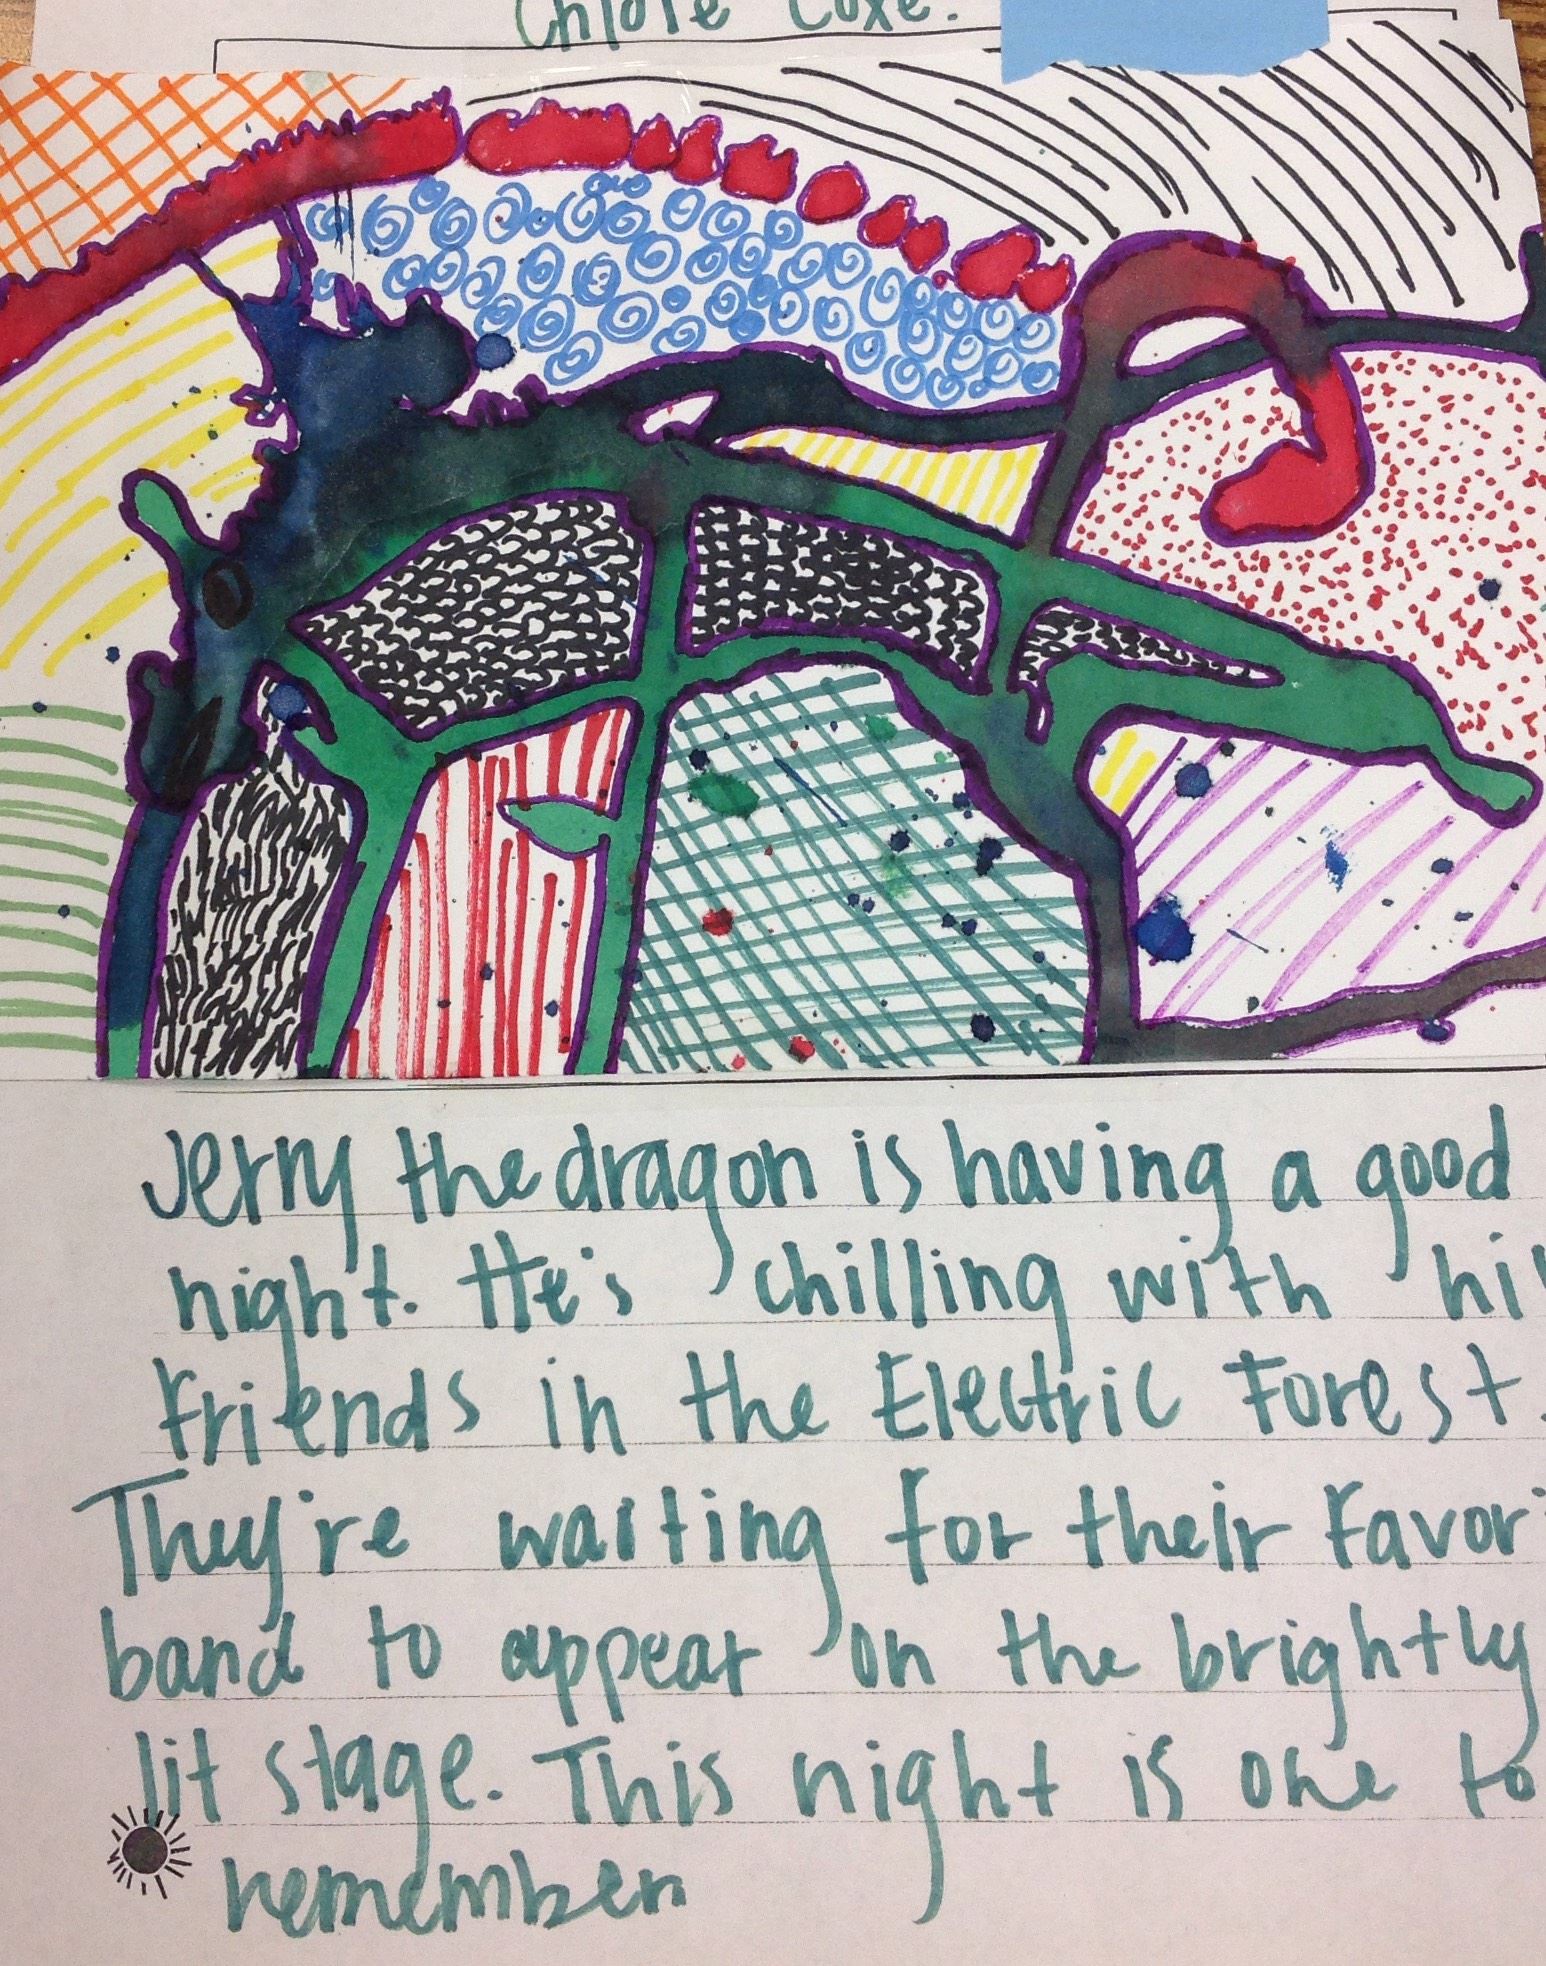 Jerry the dragon is having a good
night. He's chilling with
friends in the Electric Forest.
They're waiting for their
band to appear on the brightly
lit stage. This night is one to
remember